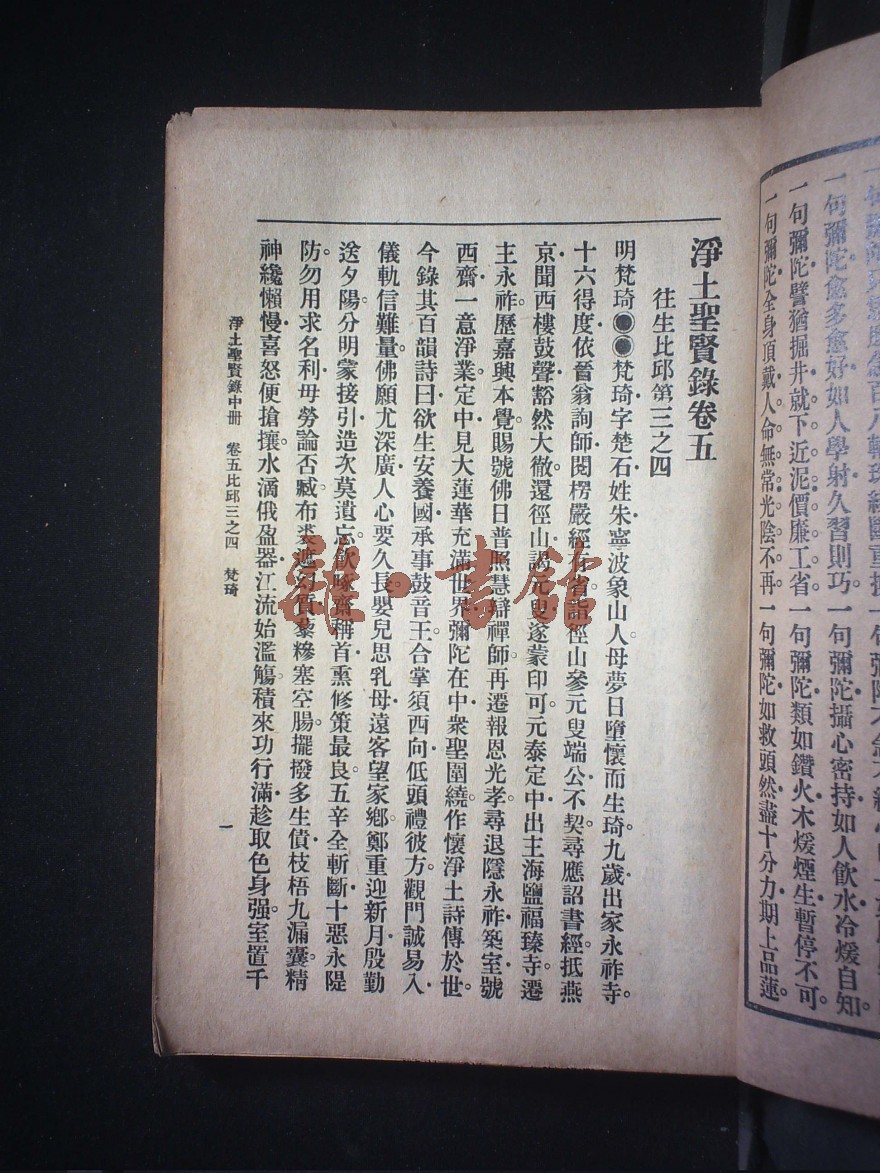 一句彌陀愈多愈好如人學射久習則巧一句彌陀攝心密持如人飲水冷煖自知。
一句彌陀譬猶掘井就下近泥價廉工省。一句彌陀類如鑽火木煖煙生暫停不可
一句彌陀全身頂戴人命無常光陰不再一句彌陀如救頭然盡十分力期上品蓮
淨土聖賢錄卷五
往生比邱第三之四
明梵琦●●梵琦字楚石姓朱寧波象山人母夢日墮懷而生琦九歲出家永祚寺。
十六得度依晉翁詢師閱楞嚴經有省詣徑山參元叟端公不契尋應詔書經抵燕
京聞西樓鼓聲豁然大徹還徑山謁元叟遂蒙印可元泰定中出主海鹽福臻寺遷
主永祚歷嘉興本覺賜號佛日普照慧辯禪師再遷報恩光孝尋退隱永祚築室號
西齋一意淨業定中見大蓮華充滿世界彌陀在中衆聖圍繞作懷淨土詩傳於世
今錄其百韻詩曰欲生安養國承事鼓音王合掌須西向低頭禮彼方觀門誠易入
儀軌信難量佛願尤深廣人心要久長嬰兒思乳母遠客望家鄉鄭重迎新月殷勤
送夕陽分明蒙接引造次莫遺忘飲啄齋稱首熏修策最良五辛全斬斷十惡永隄
防勿用求名利毋勞論否臧布裘遮幻質藜糝塞空腸擺撥多生債枝梧九漏囊精
神纔懶慢喜怒便搶攘水滴俄盈器江流始濫觴積來功行滿趁取色身强室置千
淨土聖賢錄中册　卷五比邱三之四　梵琦
一
雜·書館